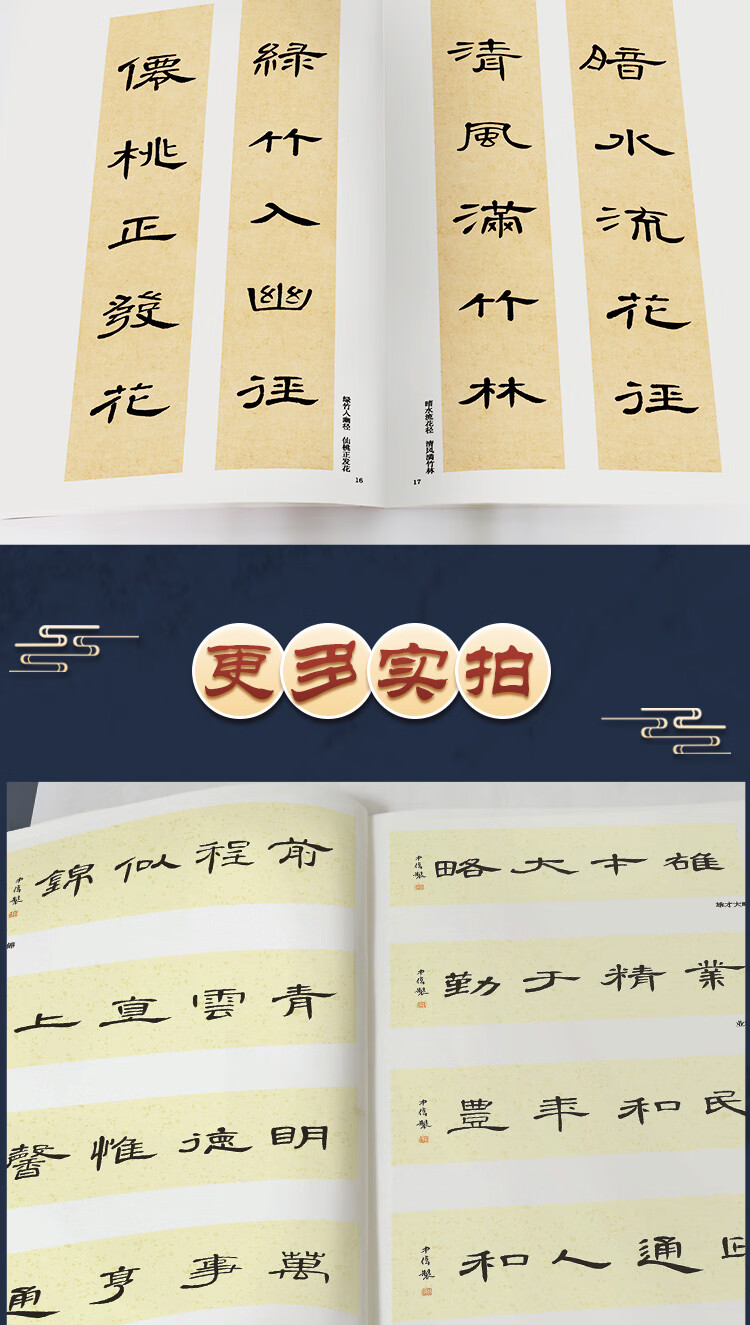 暗水流花徑
清風滿竹林
綠竹入幽徑
僊桃正發花
暗水流花径 清风满竹林
17
绿竹入幽径 仙桃正发花
16
更多实拍
雄才大略
雄才大略
業精于勤
业
民和年豐
通人和
前程似錦
锦
青雲直上
明德惟馨
萬事亨通